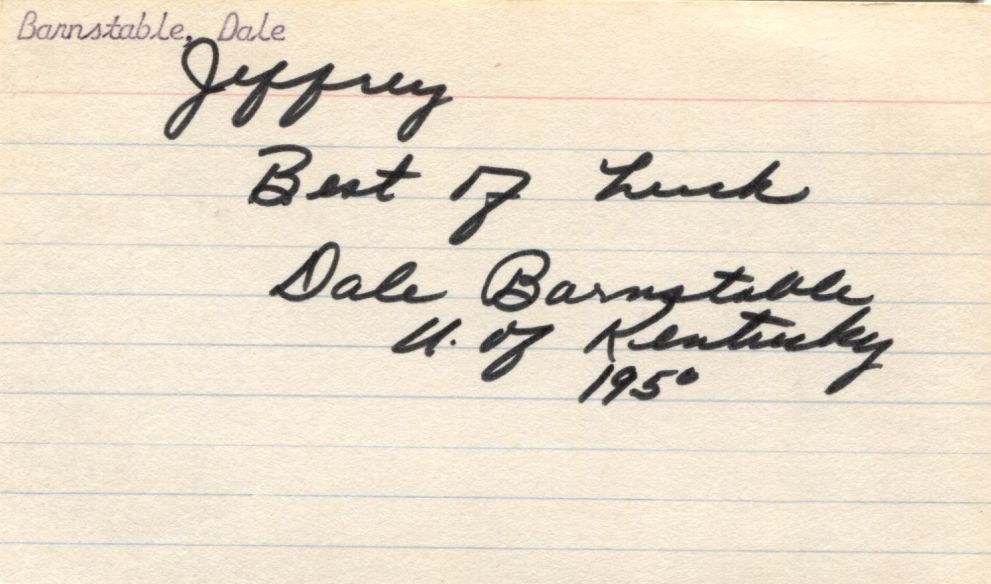 Barnstable, Dale
Jeffrey
Best of Luck
Dale Barnstable
U. of Kentucky
1950